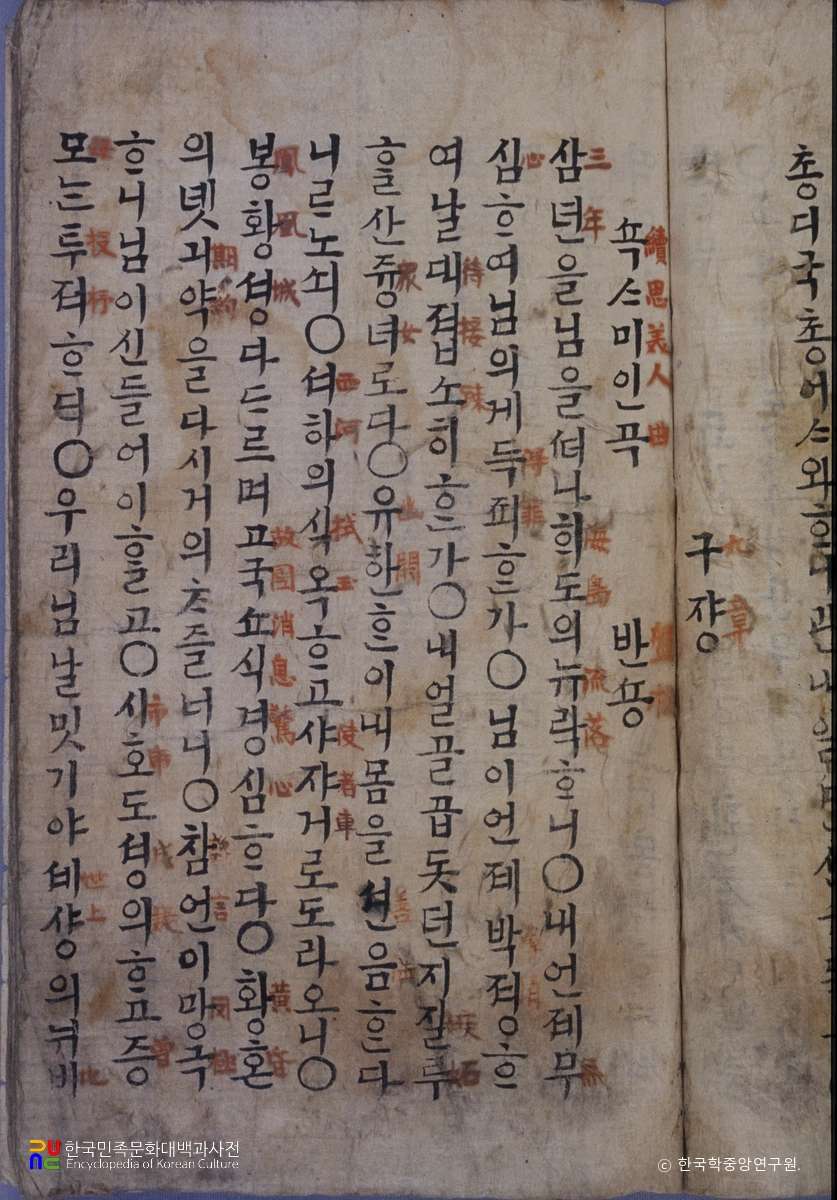 총디국총어ᄉᆞ와
구쟝
九章
쇽ᄉᆞ미인곡 반숑
續思美人曲
삼년을님을ᄯᅥ나ᄒᆡ도의뉴락ᄒᆞ니○내언제무
三年 海島 流落 無
심ᄒᆞ여님의게득죄ᄒᆞᆫ가○님이언제박졍ᄒᆞ
心 得罪
여날대졉소히ᄒᆞᆫ가○내얼골곱돗던지질투
待接疎
ᄒᆞᆯ산즁녀로다○유한ᄒᆞᆫ이내몸을션음ᄒᆞᆫ다
衆女 幽閑 善
니르노쇠○셔하의식옥ᄒᆞ고샤쟈거로도라오니○
西河 拭玉 使者車
봉황셩다ᄃᆞ르며고국쇼식경심ᄒᆞ다○황혼
鳳凰城 故國消息驚心 黃昏
의녯긔약을다시거의ᄎᆞ즐너니○참언이망극
期約 讒言 罔極
ᄒᆞ니님이신들어이ᄒᆞᆯ고○시호도셩의ᄒᆞ고증
市虎 成疑 曾
모ᄂᆞᆫ투져ᄒᆞᆫ다○우리님날밋기야셰샹의뉘비
母 投杼 世上
한국민족문화대백과사전
Encyclopedia of Korean Culture
ⓒ 한국학중앙연구원.